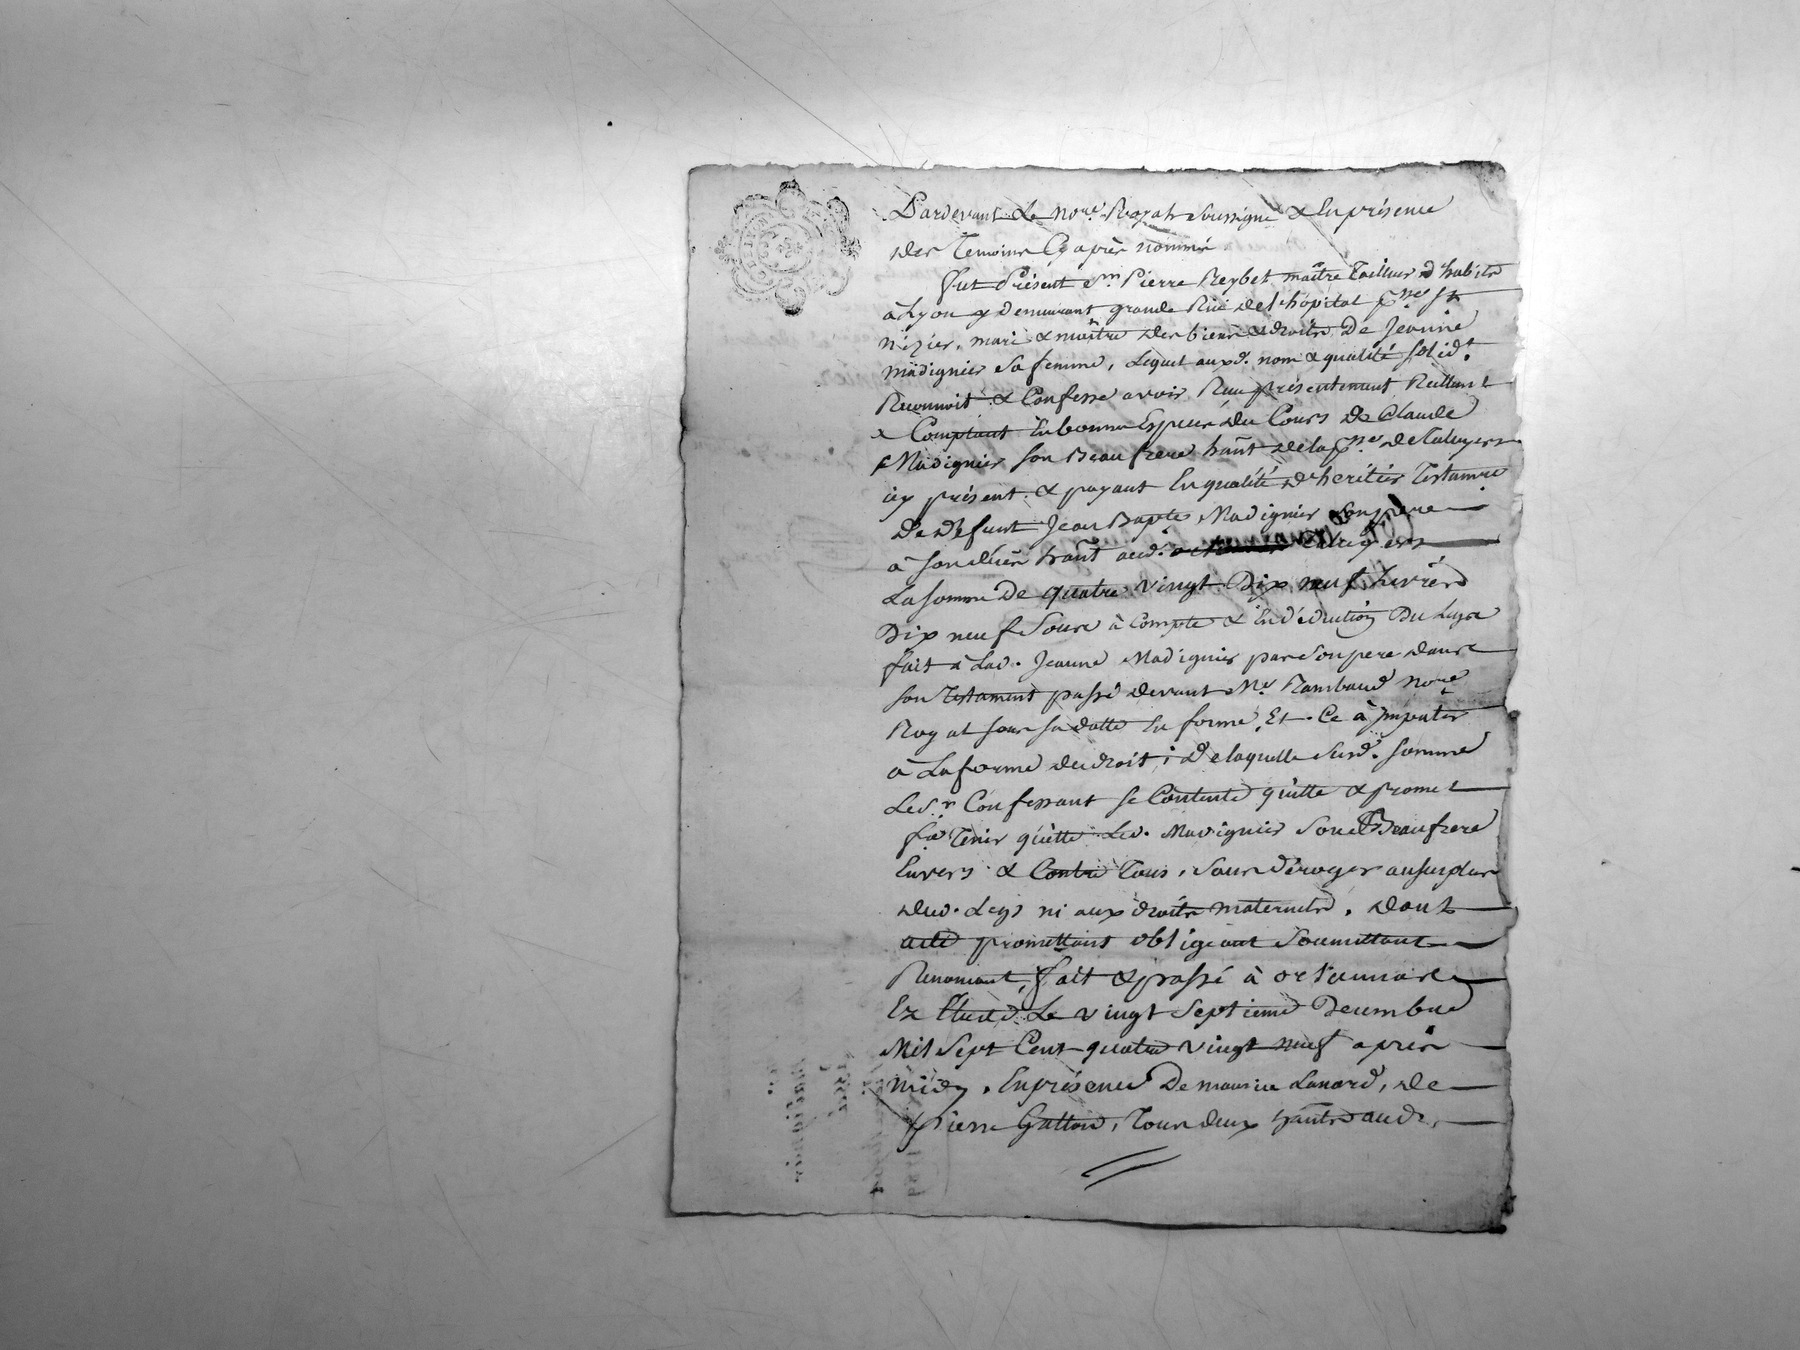 Pardevant Le no.re Royal Soussigné & En présence
des Temoins Cy après nommés
fut Présent S.r Pierre Reybet maître Tailleur d'habits
à Lyon y demeurant grande Rüe de l'hôpital p.sse St
nizier, mari & maître des biens & droits De Jeanne
madignier Sa femme, Lequel auxd. nom & qualité solid.t
Reconnoit & Confesse avoir Reçu présentement Réellem.t
& Comptant En bonnes Espèces du Cours de Claude
Madignier son Beaufrere hãnt de la p.sse de
icy présent & payant En qualité d'héritier Testam.re
De Défunt Jean Bapte Madignier Son pere
à son décès hãnt aud.
La somme De quatre vingt Dix neuf Livres
Dix neuf Sous à Compte & En déduction Du Legs
fait à Lad. Jeanne Madignier par Son pere dans
son Testament passé devant M.e Rambaud no.re
Royal sous sa datte En forme, Et Ce à Imputer
à La forme du droit; De laquelle Susd. somme
Led. S.r Confessant se Contente quitte & promet
f.re Tenir quitte Led. Madignier Son Beaufrere
Envers & Contre Tous, Sans déroger au surplus
dud. Legs ni aux droits maternels. dont
acte promettans obligeant Soumettant
Renonçant, fait & passé à
Le vingt Septieme Decembre
Mil Sept Cent quatre vingt neuf après
midy, En présence De maurice Lanard, de
pierre Gatton, Tous deux hãnts aud.